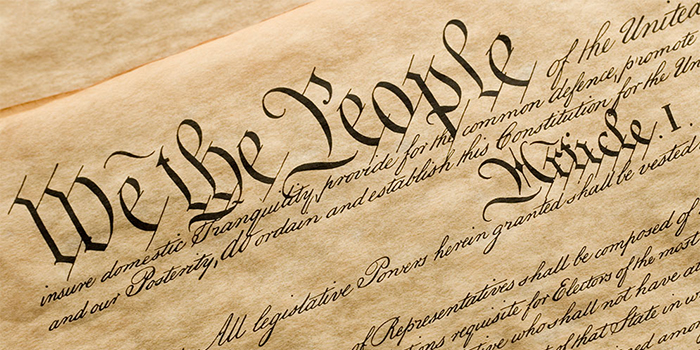 We the People of the United
insure domestic Tranquility, provide for the common defence, promote
and our Posterity, do ordain and establish this Constitution for the Un
Article. I.
All legislative Powers herein granted shall be vested
of Representatives shall be composed of
requisite for Electors of the most
who shall not have
of that State in w
amo